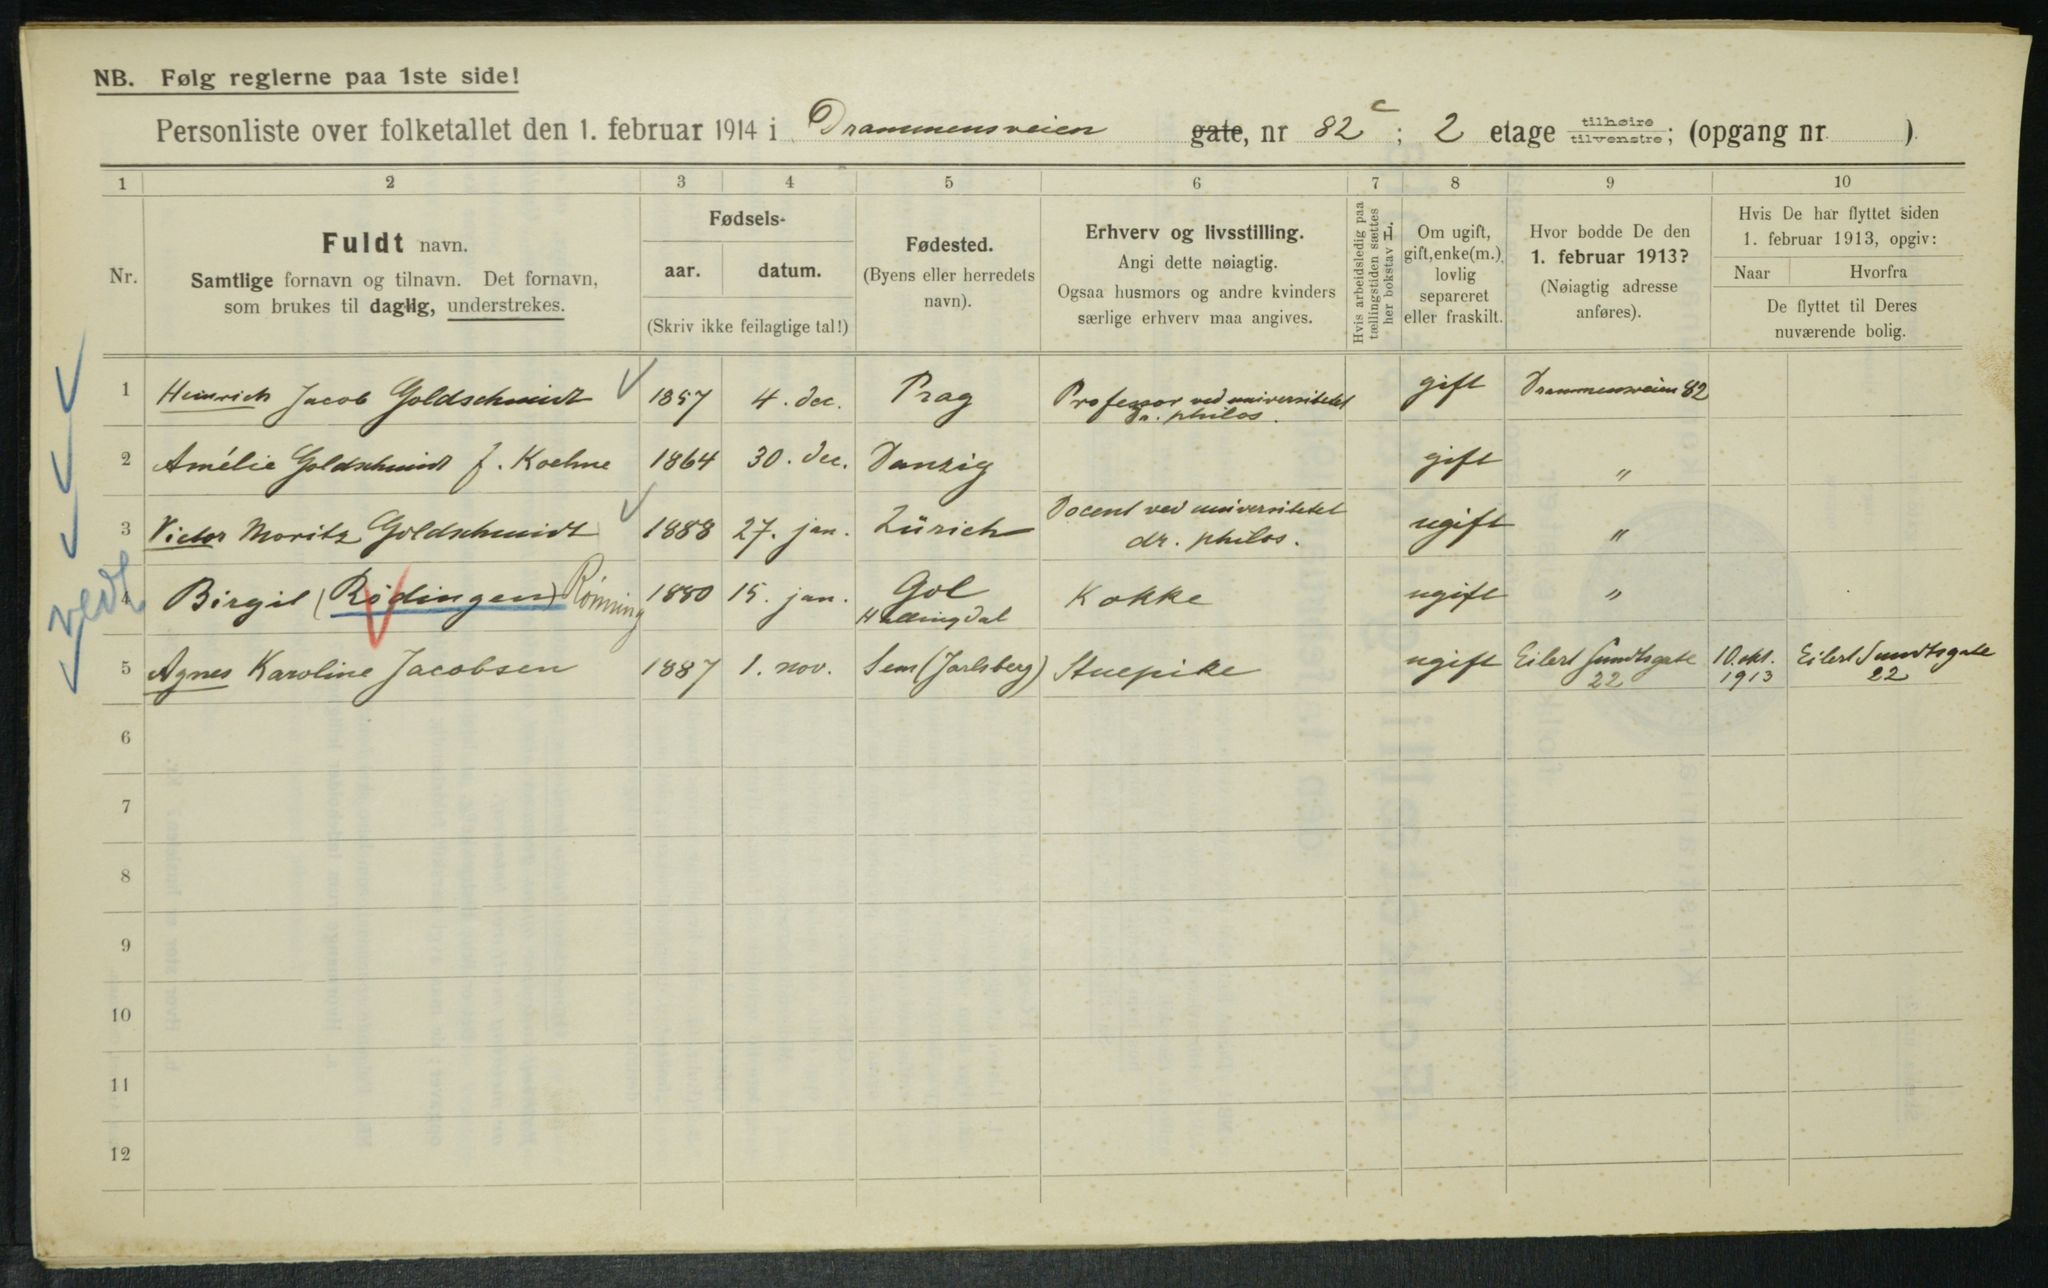 NB. Følg reglerne paa 1ste side!
Personliste over folketallet den 1. februar 1914 i Drammensveien gate, nr 82 c; 2 etage tilhøire tilvenstre; (opgang nr )
1 2 3 4 5 6 7 8 9 10
Nr.
Fuldt navn.
Samtlige fornavn og tilnavn. Det fornavn,
som brukes til daglig, understrekes.
Fødsels-
aar. datum.
(Skriv ikke feilagtige tal!)
Fødested.
(Byens eller herredets
navn).
Erhverv og livsstilling.
Angi dette nøiagtig.
Ogsaa husmors og andre kvinders
særlige erhverv maa angives.
Hvis arbeidsledig paa
tællingstiden sættes
her bokstav L
Om ugift,
gift, enke(m.),
lovlig
separeret
eller fraskilt.
Hvor bodde De den
1. februar 1913?
(Nøiagtig adresse
anføres).
Hvis De har flyttet siden
1. februar 1913, opgiv:
Naar Hvorfra
De flyttet til Deres
nuværende bolig.
1 Heinrich Jacob Goldschmidt 1857 4. dec. Prag Professor ved universitetet gift Drammensveien 82
dr. philos.
2 Amélie Goldschmidt f. Koehne 1864 30. dec. Danzig gift "
3 Victor Moritz Goldschmidt 1888 27. jan. Zürich Docent ved universitetet ugift "
dr. philos.
4 Birgit (Rødingen) Rønning 1880 15. jan. Gol Kokke ugift "
Hallingdal
vedt
5 Agnes Karoline Jacobsen 1887 1. nov. Sem (Jarlsberg) Stuepike ugift Eilert Sundtsgate 10. okt. Eilert Sundtsgate
22 1913 22
6
7
8
9
10
11
12